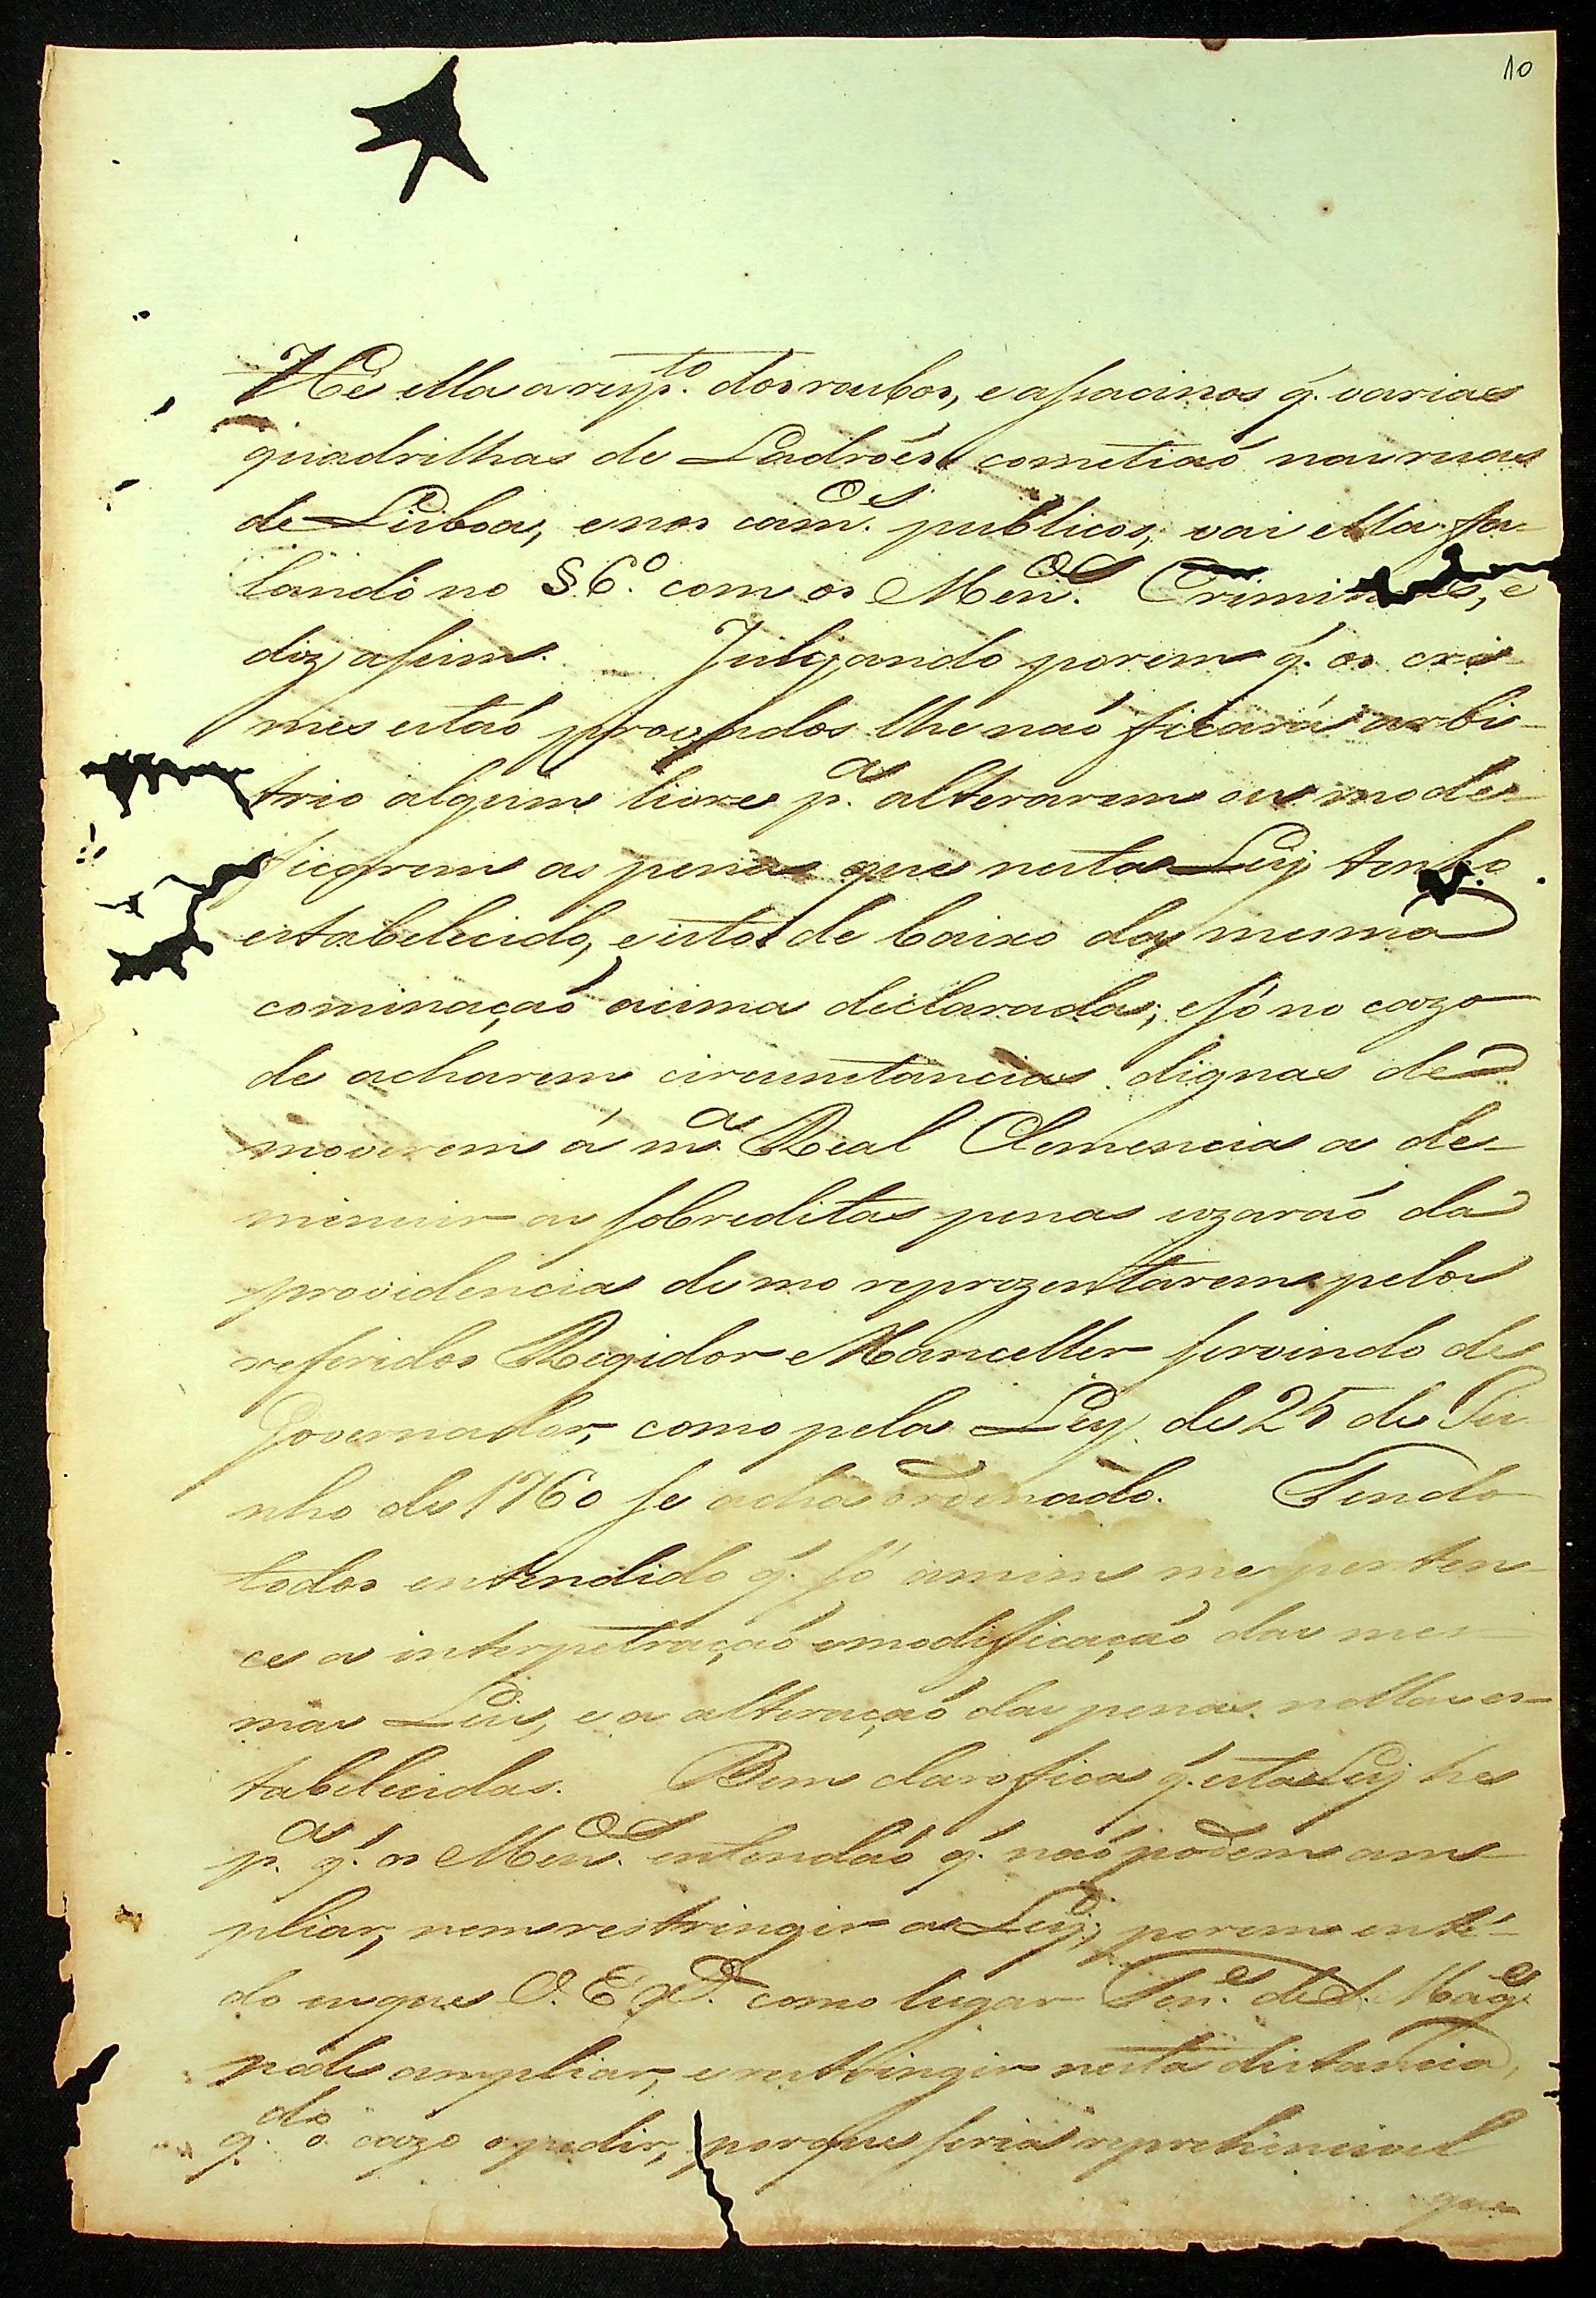 10
Hê ella a resp.to dos roubos, e assacinos q̃. varias
quadrilhas de Ladroẽs cometiaõ nas ruas
de Lisboa, e nos cam.os publicos, vai ella fa-
lando no §6.º com os Men.os Criminaes, e
diz assim. Julgando porem q̃. os cri-
mes estaõ provados lhe naõ ficará arbi-
trio algum livre p.a alterarem ou mode-
ficarem as penas que nesta Ley tenho
estabelecido, e isto de baixo da mesma
cominaçaõ acima declarada; e só no cazo
de acharem circunstancias dignas de
moverem á m.a Real Clemencia a de-
menuir as sobreditas penas uzaraõ da
providencia de mo reprezentarem pelos
referidos Regidor e Chanceller servindo de
Governador, como pela Ley de 25 de Ju
nho de 1760 se acha ordenado. Tendo
todos entendido q̃. só amim me perten-
ce a interpetraçaõ e modificaçaõ das mes-
mas Leis, e a alteraçaõ das penas nellas es-
tabelecidas. Bem claro fica q̃. esta Ley he
p.a q̃. os Men.os entendaõ q̃. naõ podem am-
pliar, nem restringir a Ley; porem entẽ-
do eu que V. Ex.a como lugar Ten.e de S. Mag.e
pode ampliar, e restringir nesta distancia,
q.do o cazo o pedir, porque seria reprehincivel
que